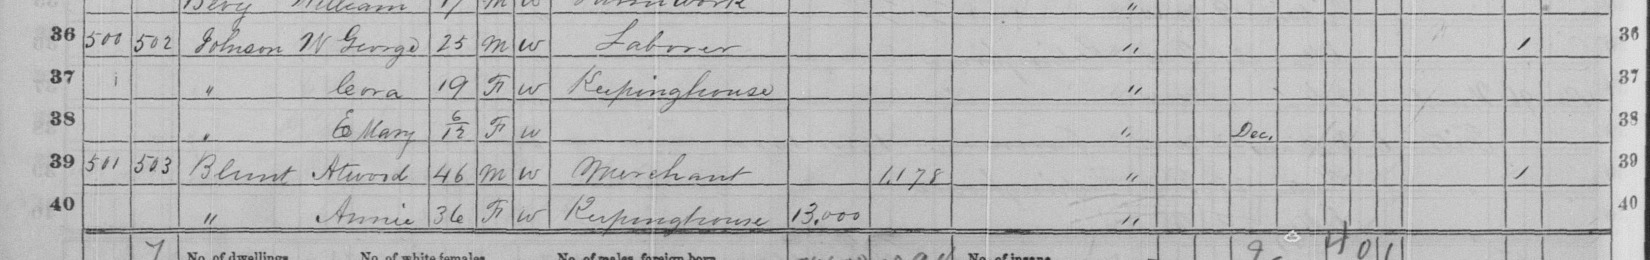 William 17 M W "
36 500 502 Johnson W George 25 M W Laborer " 1 36
37 " Cora 19 F W Keepinghouse " 37
38 " E Mary 6/12 F W " Dec. 38
39 501 503 Blunt Atwood 46 M W Merchant 1,178 " 1 39
40 " Annie 36 F W Keepinghouse 13,000 " 40
7 No. of dwellings No. of white females No. of males, foreign born No. of insane